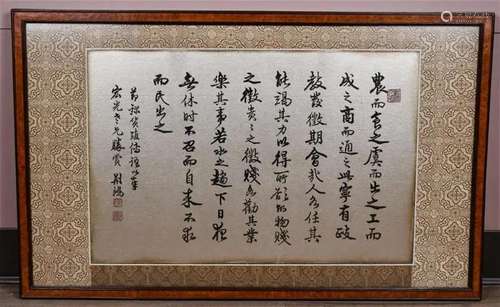 農而食之虞而出之工而
成之商而通之此寧有政
教發徵期會哉人各任其
能竭其力以得所欲故物賤
之徵貴々之徵賤各勸其業
樂其事若水之趨下日夜
無休時不召而自來不求
而民出之
節錄貨殖傳語
宏光老兄勝賞